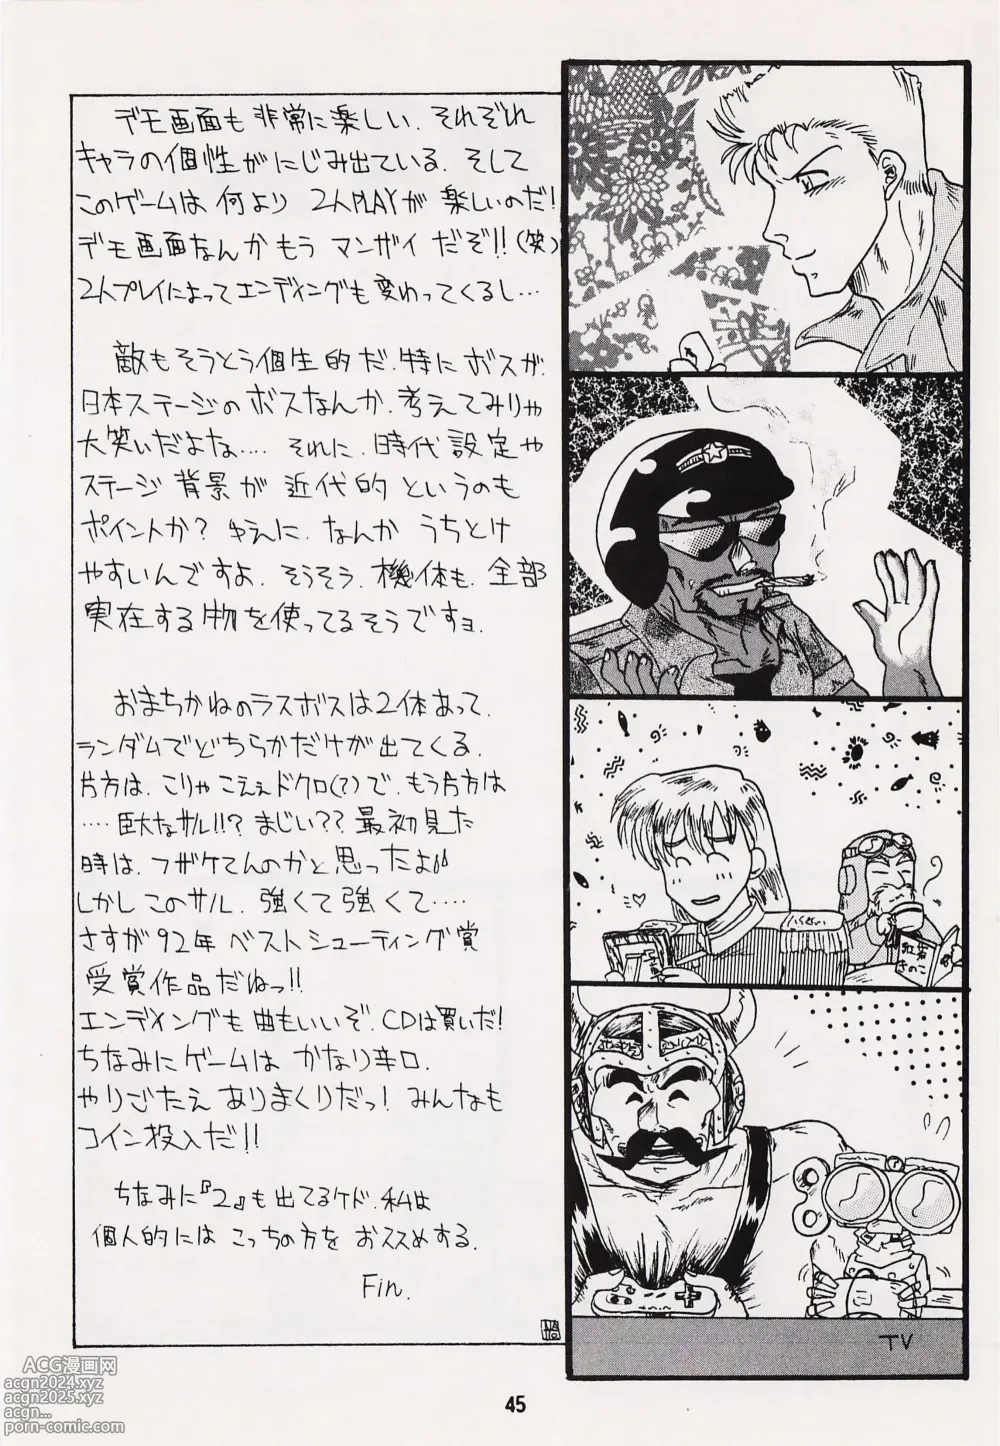 デモ画面も非常に楽しい. それぞれ
キャラの個性がにじみ出ている. そして
このゲームは何より 2人PLAYが楽しいのだ!
デモ画面なんかもう マンザイ だぞ!!(笑)
2人プレイによってエンディングも変わってくるし…
敵もそうとう個生的だ. 特にボスが.
日本ステージのボスなんか. 考えてみりゃ
大笑いだよな…. それに. 時代設定や
ステージ背景が近代的というのも
ポイントか? ゆえに. なんか うちとけ
やすいんですよ. そうそう. 機体も. 全部
実在する物を使ってるそうですョ.
おまちかねのラスボスは2体あって.
ランダムでどちらかだけが出てくる.
片方は. こりゃこえぇドクロ(?)で. もう片方は
…. 巨大なサル!!? まじい?? 最初見た
時は. フザケてんのかと思ったよ
しかしこのサル. 強くて強くて….
さすが92年ベストシューティング賞
受賞作品だねっ!!
エンディングも曲もいいぞ. CDは買いだ!
ちなみにゲームは かなり辛口.
やりごたえ ありまくりだっ! みんなも
コイン投入だ!!
ちなみに『2』も出てるケド. 私は
個人的には こっちの方を おススめする.
Fin.
紅茶
きのこ
TV
45
ACG漫画网
acgn2024.xyz
acgn2025.xyz
acgn...
porn-comic.com